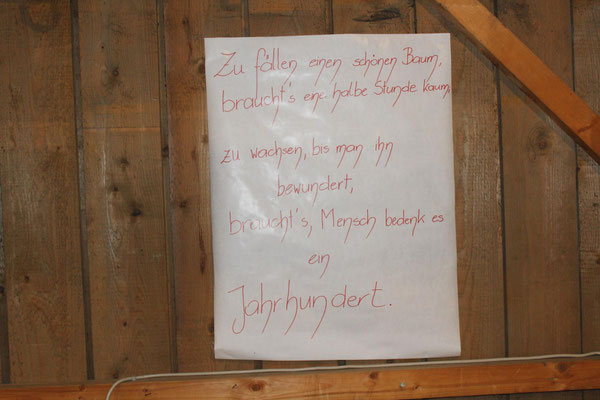 Zu fällen einen schönen Baum,
braucht's ene halbe Stunde kaum,
zu wachsen, bis man ihn
bewundert,
braucht's, Mensch bedenk es
ein
Jahrhundert.